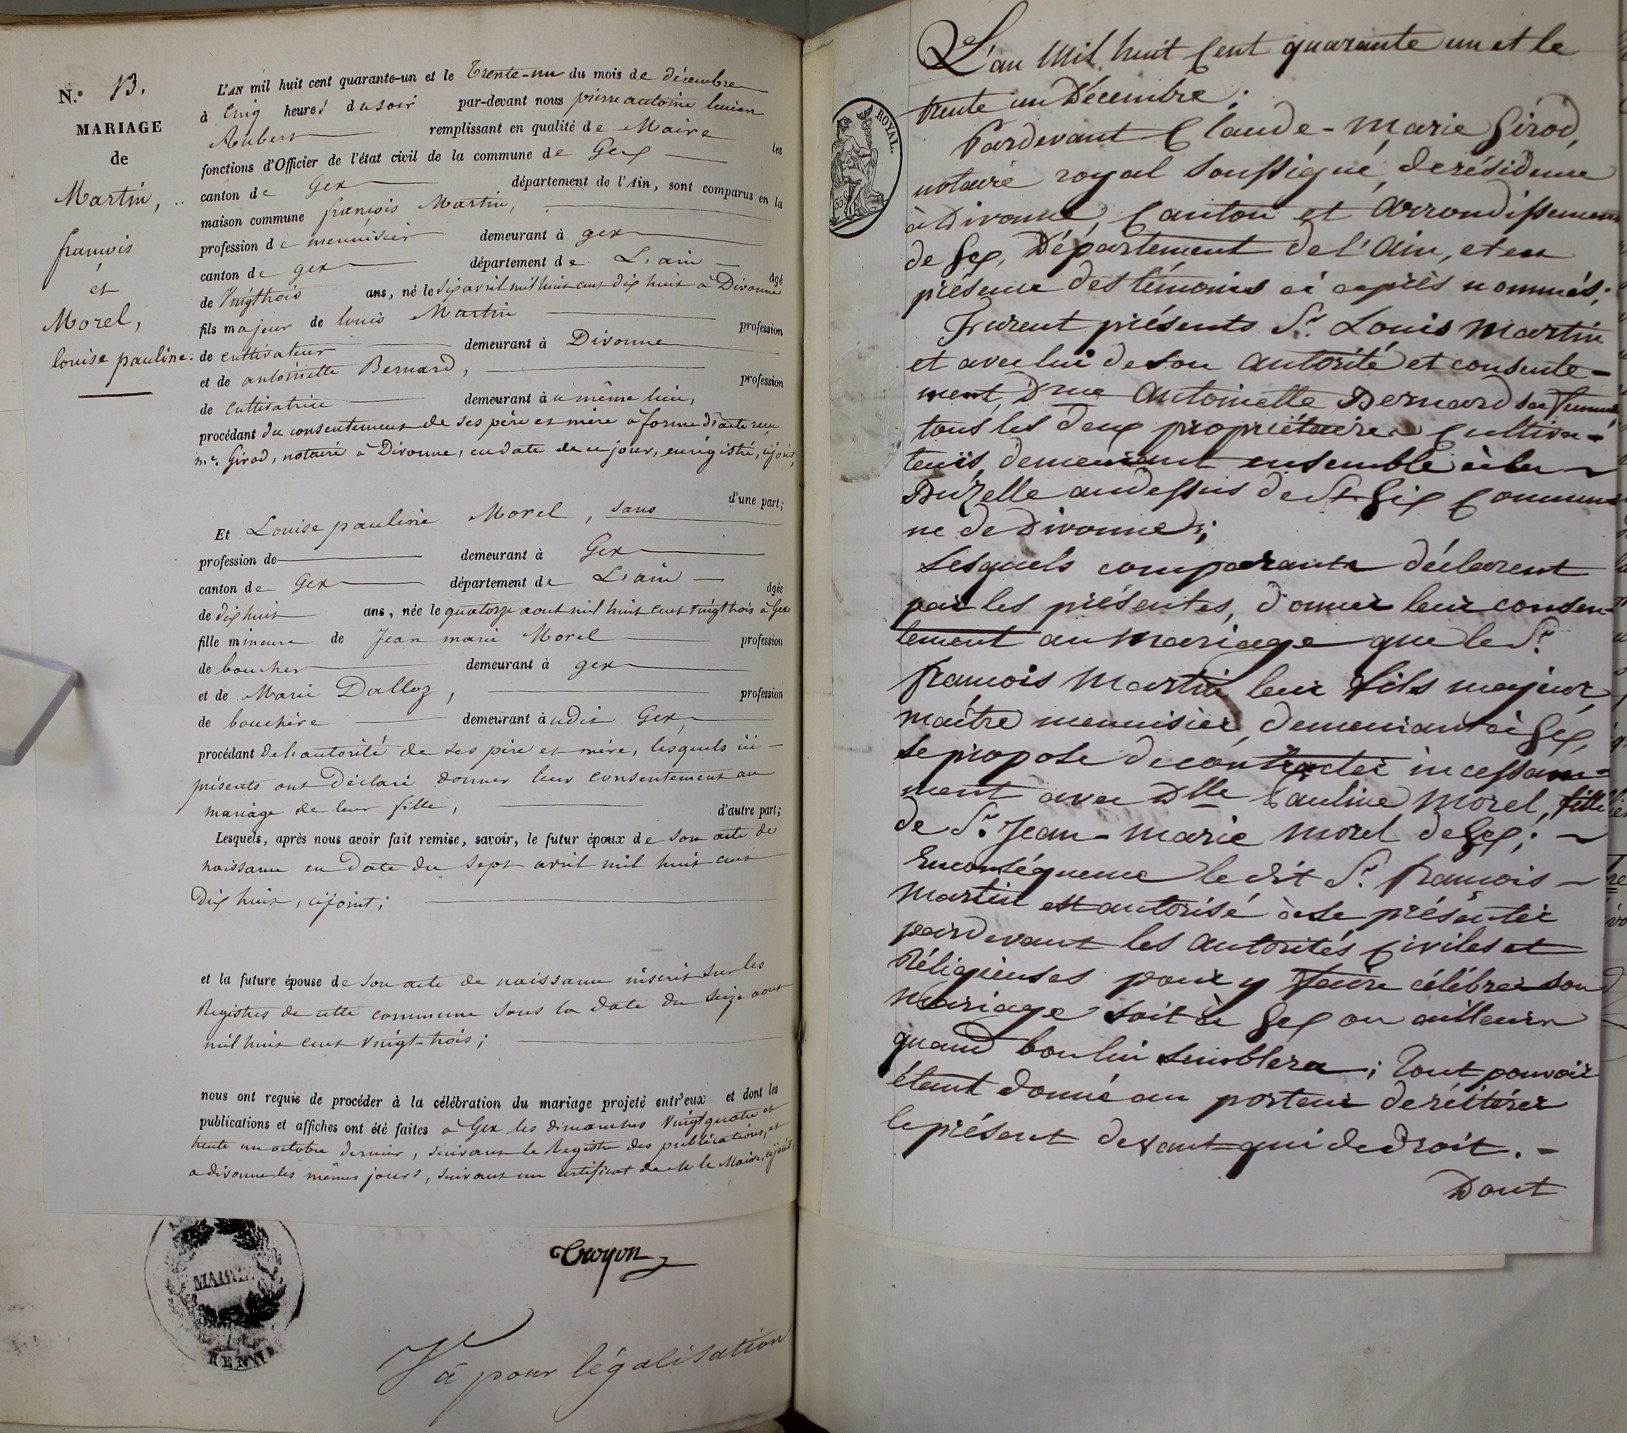 N.° 13.
MARIAGE
de
Martin,
françois
et
Morel,
louise pauline.
L'AN mil huit cent quarante-un et le trente-un du mois de décembre
à cinq heures du soir par-devant nous pierre antoine lucien
Aubert remplissant en qualité de Maire les
fonctions d'Officier de l'état civil de la commune de Gex
canton de Gex département de l'Ain, sont comparus en la
maison commune françois Martin,
profession de menuisier demeurant à gex
canton de gex département de L'ain âgé
de Vingtrois ans, né le six avril mil huit cent dix huit à Divonne
fils majeur de louis Martin profession
de cultivateur demeurant à Divonne
et de antoinette Bernard, profession
de cultivatrice demeurant à u même lieu,
procédant du consentement de ses père et mère à forme d'acte reçu
me. Girod, notaire à Divonne, en date de ce jour, enrégistré, cijoint,
d'une part;
Et Louise pauline Morel, sans
profession de demeurant à Gex
canton de Gex département de L'ain âgée
de dix huit ans, née le quatorze aout mil huit cent vingt trois à Gex
fille mineure de Jean marie Morel profession
de boucher demeurant à gex
et de Marie Dalloz, profession
de bouchère demeurant à udit Gex,
procédant de l'autorité de ses père et mère, lesquels ici
présents ont déclaré donner leur consentement au
mariage de leur fille, d'autre part;
Lesquels, après nous avoir fait remise, savoir, le futur époux de son acte de
naissance en date du sept avril mil huit cent
dix huit, cijoint;
et la future épouse de son acte de naissance inscrit sur les
Registres de cette commune sous la date du seize aout
mil huit cent vingt-trois;
nous ont requis de procéder à la célébration du mariage projeté entr'eux et dont les
publications et affiches ont été faites à Gex les dimanches vingt quatre et
trente un octobre dernier, suivant le Registre des publications, et
a divonne les mêmes jours, suivant un certificat de M le Maire, cijoint,
MAIRIE
Croyon
Vu pour légalisation
ROYAL.
35
L'an Mil huit Cent quarante un et le
trente un Décembre;
Pardevant Claude-Marie Girod,
notaire royal soussigné, de résidence
à Divonne, Canton et Arrondissement
de Gex, Département de l'Ain, et en
présence des témoins ci après nommés;
Furent présents Sr. Louis Martin
et avec lui de son autorité et consente-
ment, Dme Antoinette Bernard sa femme,
tous les deux propriétaires Cultiva-
teurs, demeurant ensemble à la
Duzelle audessus de St Gix Commu-
ne de Divonne;
Lesquels comparants déclarent
par les présentes, donner leur consen-
tement au mariage que le Sr.
françois Martin leur fils majeur,
maître menuisier, demeurant à Gex,
se propose de contracter incessam-
ment avec Dlle Pauline Morel, fille
de Sr. Jean-Marie Morel de Gex;
En conséquence le dit Sr. françois
Martin est autorisé à se présenter
pardevant les autorités Civiles et
Réligieuses pour y faire célébrer son
mariage soit à Gex ou ailleurs
quand bon lui semblera; Tout pouvoir
étant donné au porteur de réitérer
le présent devant qui de droit.
Dont